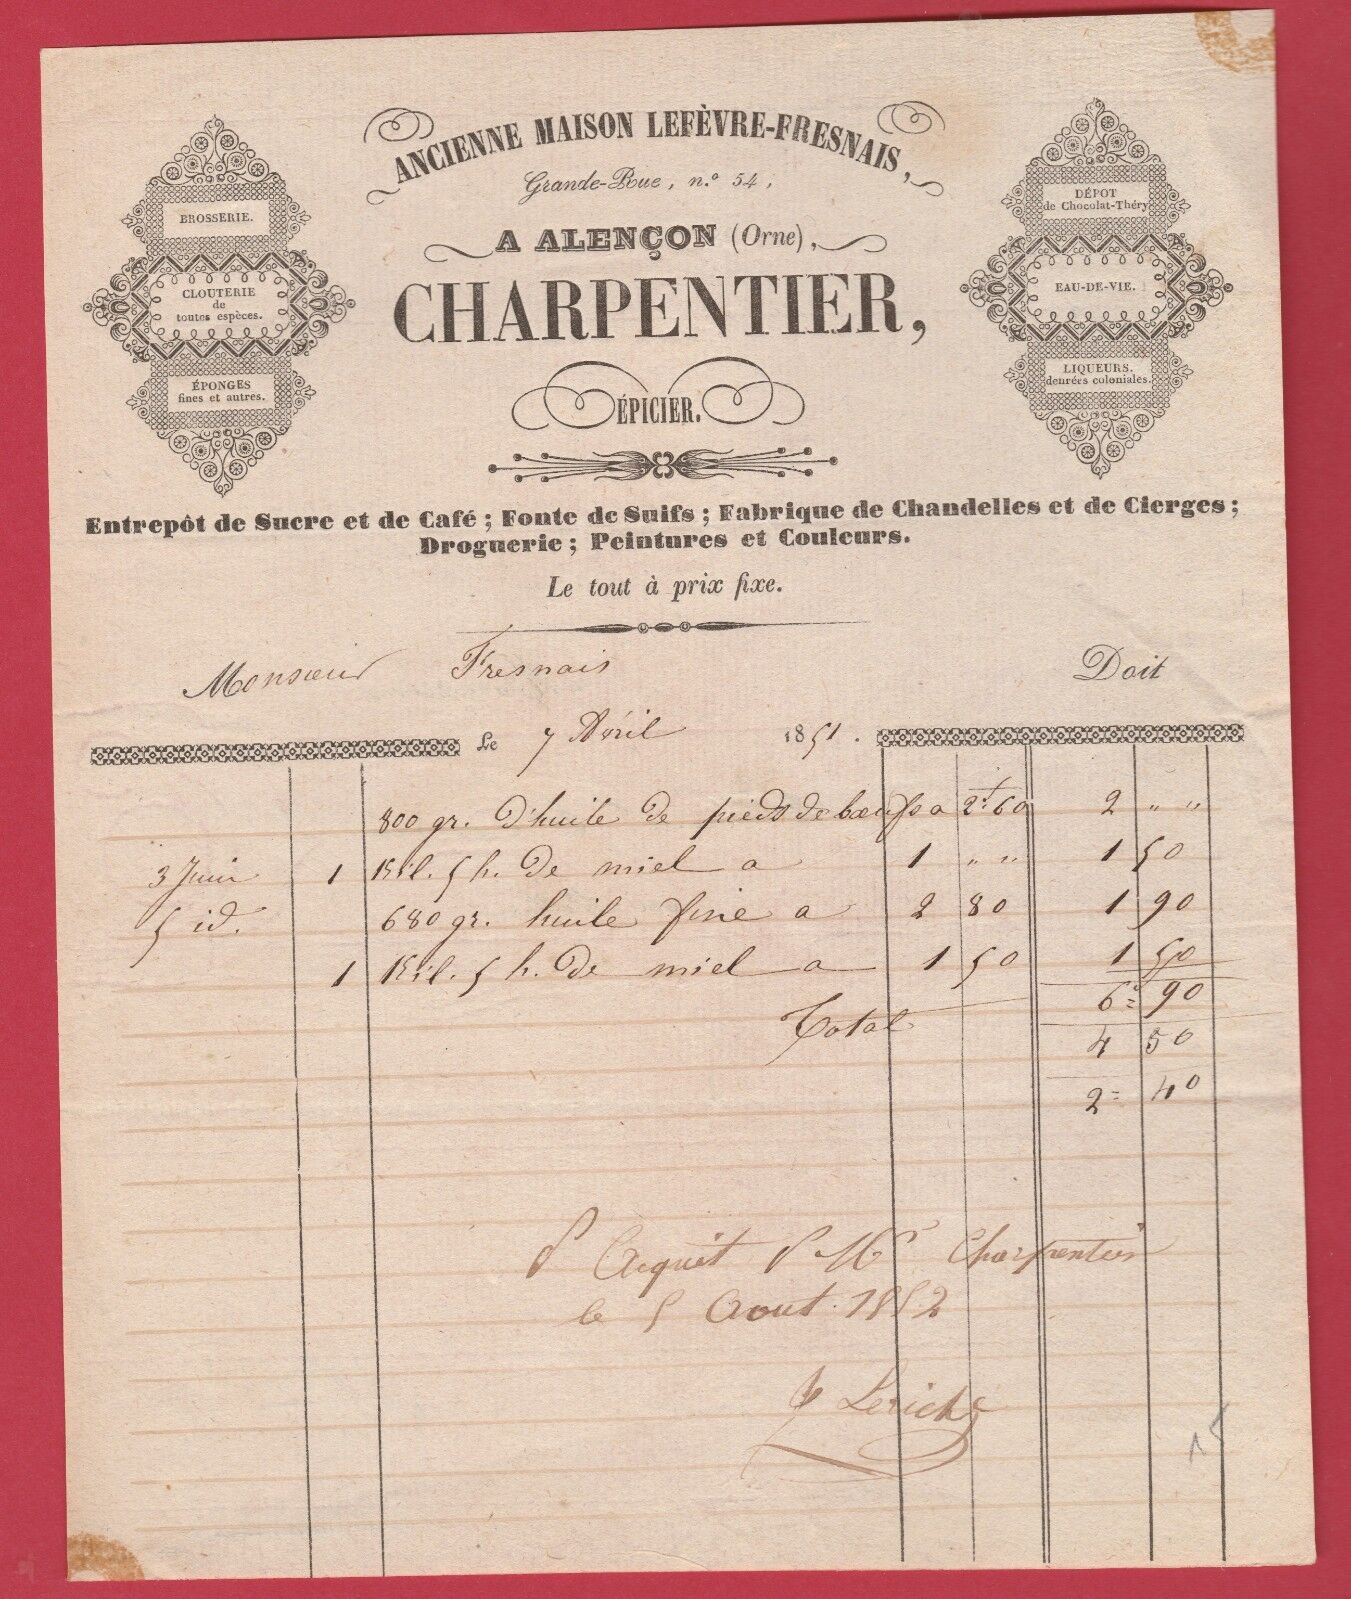 ANCIENNE MAISON LEFÈVRE-FRESNAIS,
Grande-Rue, n.º 54,
A ALENÇON (Orne),
CHARPENTIER,
ÉPICIER.
BROSSERIE.
CLOUTERIE
de
toutes espèces.
ÉPONGES
fines et autres.
DÉPOT
de Chocolat-Théry
EAU-DE-VIE.
LIQUEURS.
denrées coloniales.
Entrepôt de Sucre et de Café ; Fonte de Suifs ; Fabrique de Chandelles et de Cierges ;
Droguerie ; Peintures et Couleurs.
Le tout à prix fixe.
Monsieur Fresnais Doit
Le 7 Avril 1851.
800 gr. d'huile de pieds de bœufs a 2f 60 2 " "
3 Juin 1 Kil. 5 h. de miel a 1 " " 1 50
5 id. 680 gr. huile fine a 2 80 1 90
1 Kil. 5 h. de miel a 1 50 1 50
Total 6 = 90
4 50
2 = 40
P Acquit P Mr Charpentier
le 5 Aout. 1852
Leriche
15